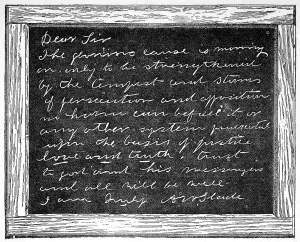 Dear Sir
The glorious cause is moving
on only to be strengthened
by the tempest and storms
of persecution and opposition
no harm can befall it or
any other system
upon the basis of justice
love and truth. trust
to god and his messenger
and all will be well
I am truly A W Slade